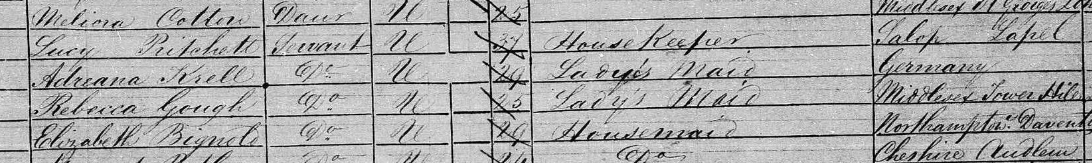 Meliora Cotton Daur U 25 Middlesex St Georges
Lucy Pritchett Servant U 37 HouseKeeper Salop Lapel
Adreana Krell Do U 29 Lady's Maid Germany
Rebecca Gough Do U 25 Lady's Maid Middlesex Tower Hill
Elizabeth Bignold Do U 29 Housemaid Northampton Davent
Do Do Cheshire Audlem